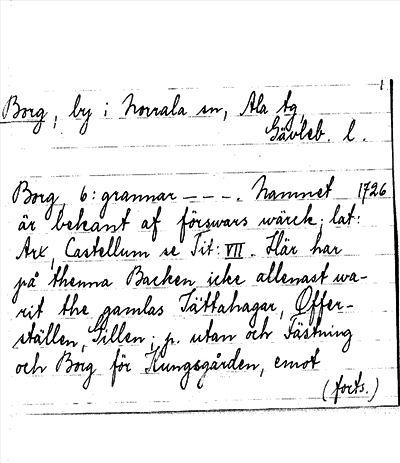 Borg, by i Norrala sn, Ala tg,
Gävleb. l.
Borg, 6: grannar – – –. Namnet 1726
är bekant af förswars wärck; lat:
Arx, Castellum se Tit: VII. Här har
på thenna Backen icke allenast wa-
rit the gamlas Tättahagar, Offer-
ställen, Tillen; p. utan och Fästning
och Borg för Kungsgården, emot
(forts.)